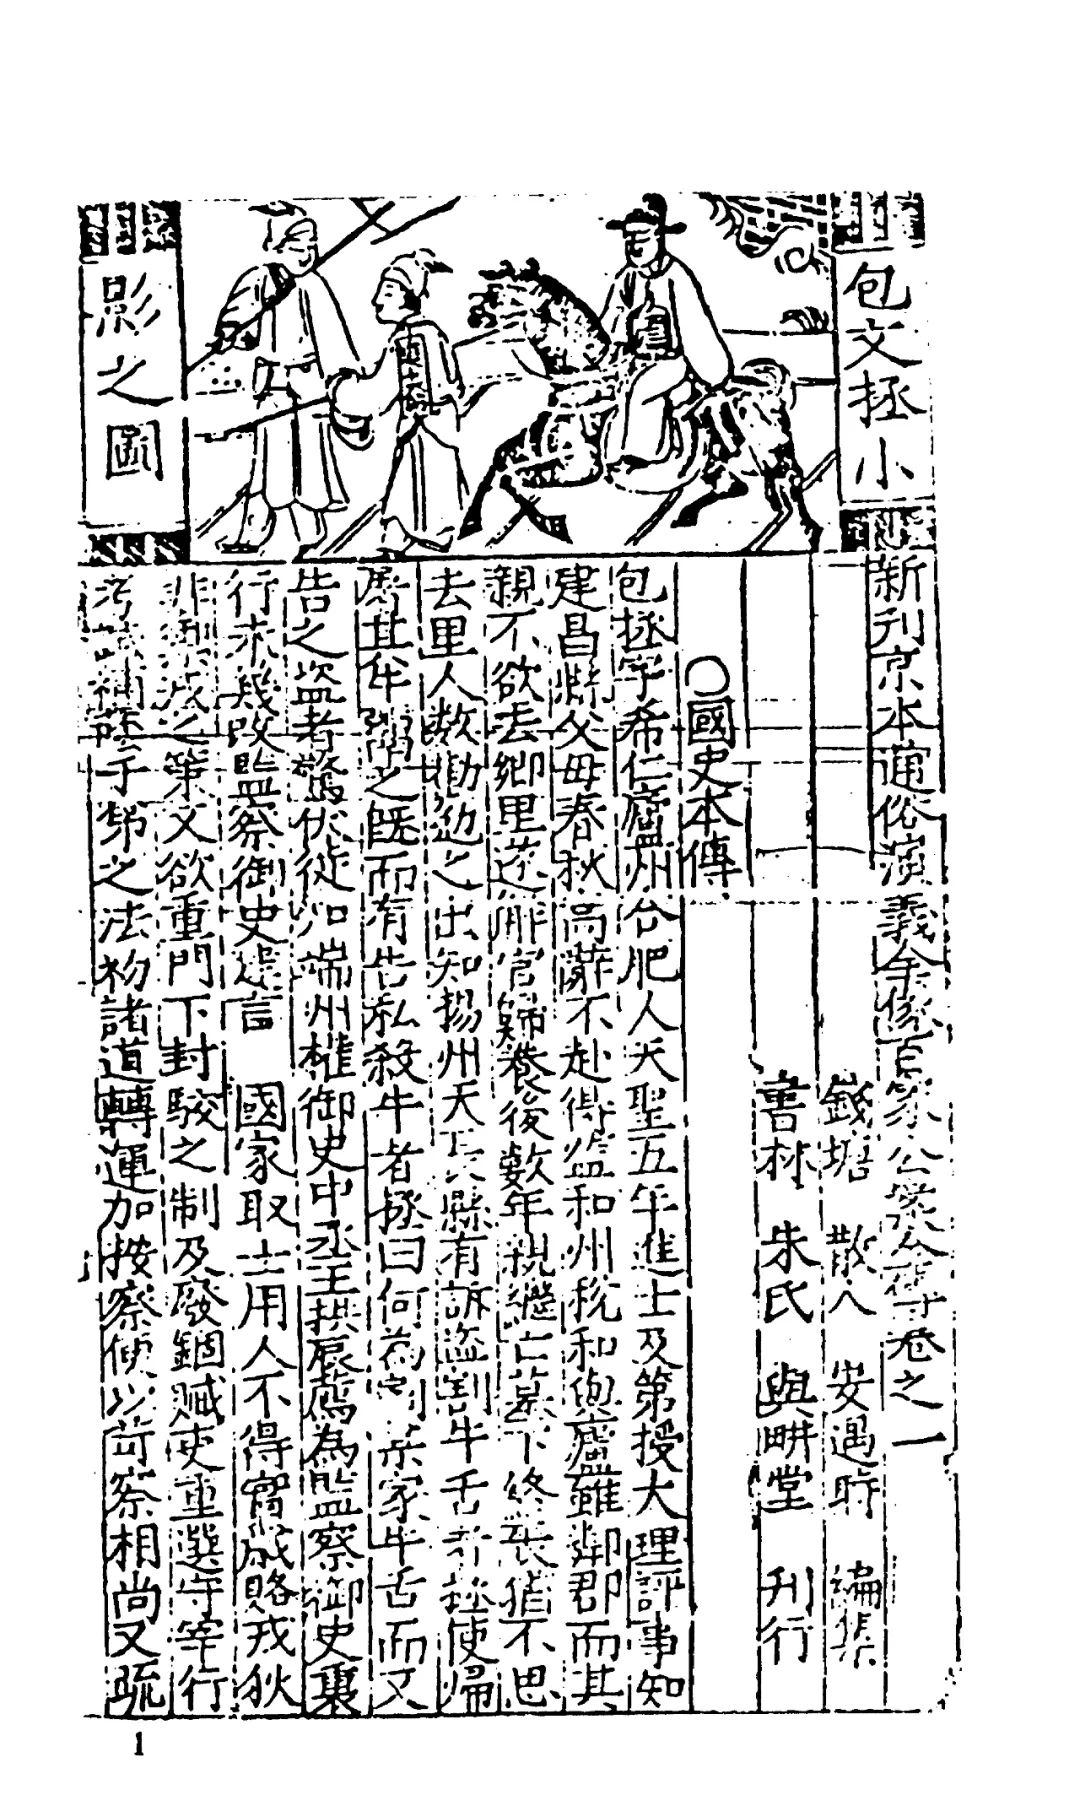 包文拯小
影之圖
新刊京本通俗演義全像百家公案全傳卷之一
錢塘 散人 安遇時 編集
書林 朱氏 與畊堂 刊行
○國史本傳
包拯字希仁廬州合肥人天聖五年進士及第授大理評事知
建昌縣父母春秋高辭不赴得監和州稅和與廬雖鄰郡而其
親不欲去鄉里遂解官歸養後數年親繼亡墓下終喪猶不思
去里人敦勸迨之出知揚州天長縣有訴盜割牛舌者拯使歸
屠其牛鬻之既而有告私殺牛者拯曰何為割某家牛舌而又
告之盜者驚伏徙知端州權御史中丞王拱辰薦為監察御史裏
行未幾改監察御史建言 國家取士用人不得實歲賂戎狄
非禦戎之策又欲重門下封駁之制及廢錮贓吏重選守宰行
考試補廕子弟之法初諸道轉運加按察使以苛察相尚又疏
1